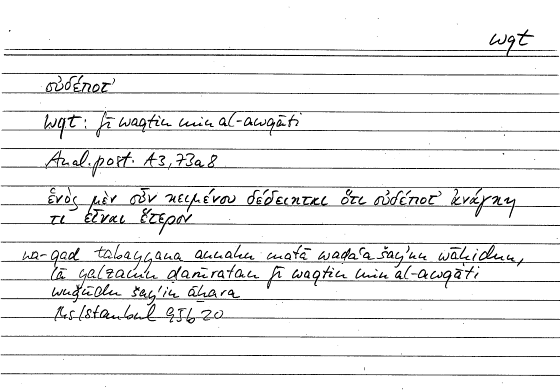 wqt
οὐδέποτ'
wqt: fī waqtin min al-awqāti
Anal. post. A3, 73a8
ἑνὸς μὲν οὖν κειμένου δέδεικται ὅτι οὐδέποτ' ἀνάγκη
τι εἶναι ἕτερον
wa-qad tabayyana annahu matā waḍaʿa šayʾun wāḥidun,
lā yalzamu ḍarūratan fī waqtin min al-awqāti
wuǧūdu šayʾin āḫara
Istanbul 95b20